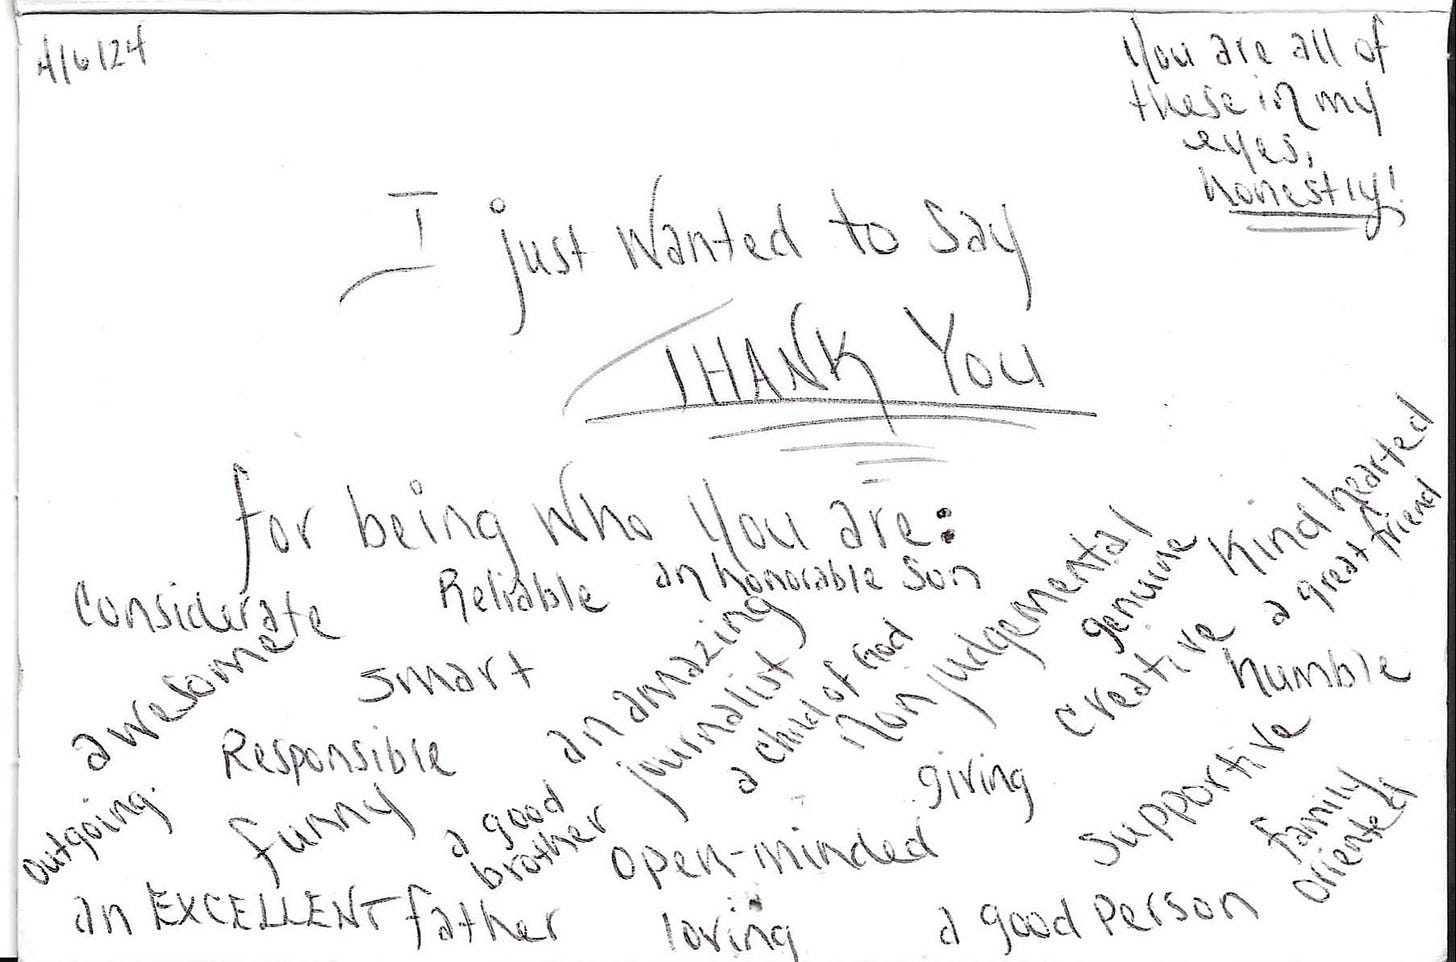 4/6/24
You are all of
these in my
eyes,
honestly!
I just wanted to say
THANK YOU
for being who you are:
Considerate
Reliable
an honorable son
awesome
smart
an amazing
journalist
a child of God
non judgemental
genuine
Kind hearted
a great friend
creative
humble
Outgoing
Responsible
funny
a good
brother
open-minded
giving
supportive
family
oriented
an EXCELLENT father
loving
a good person